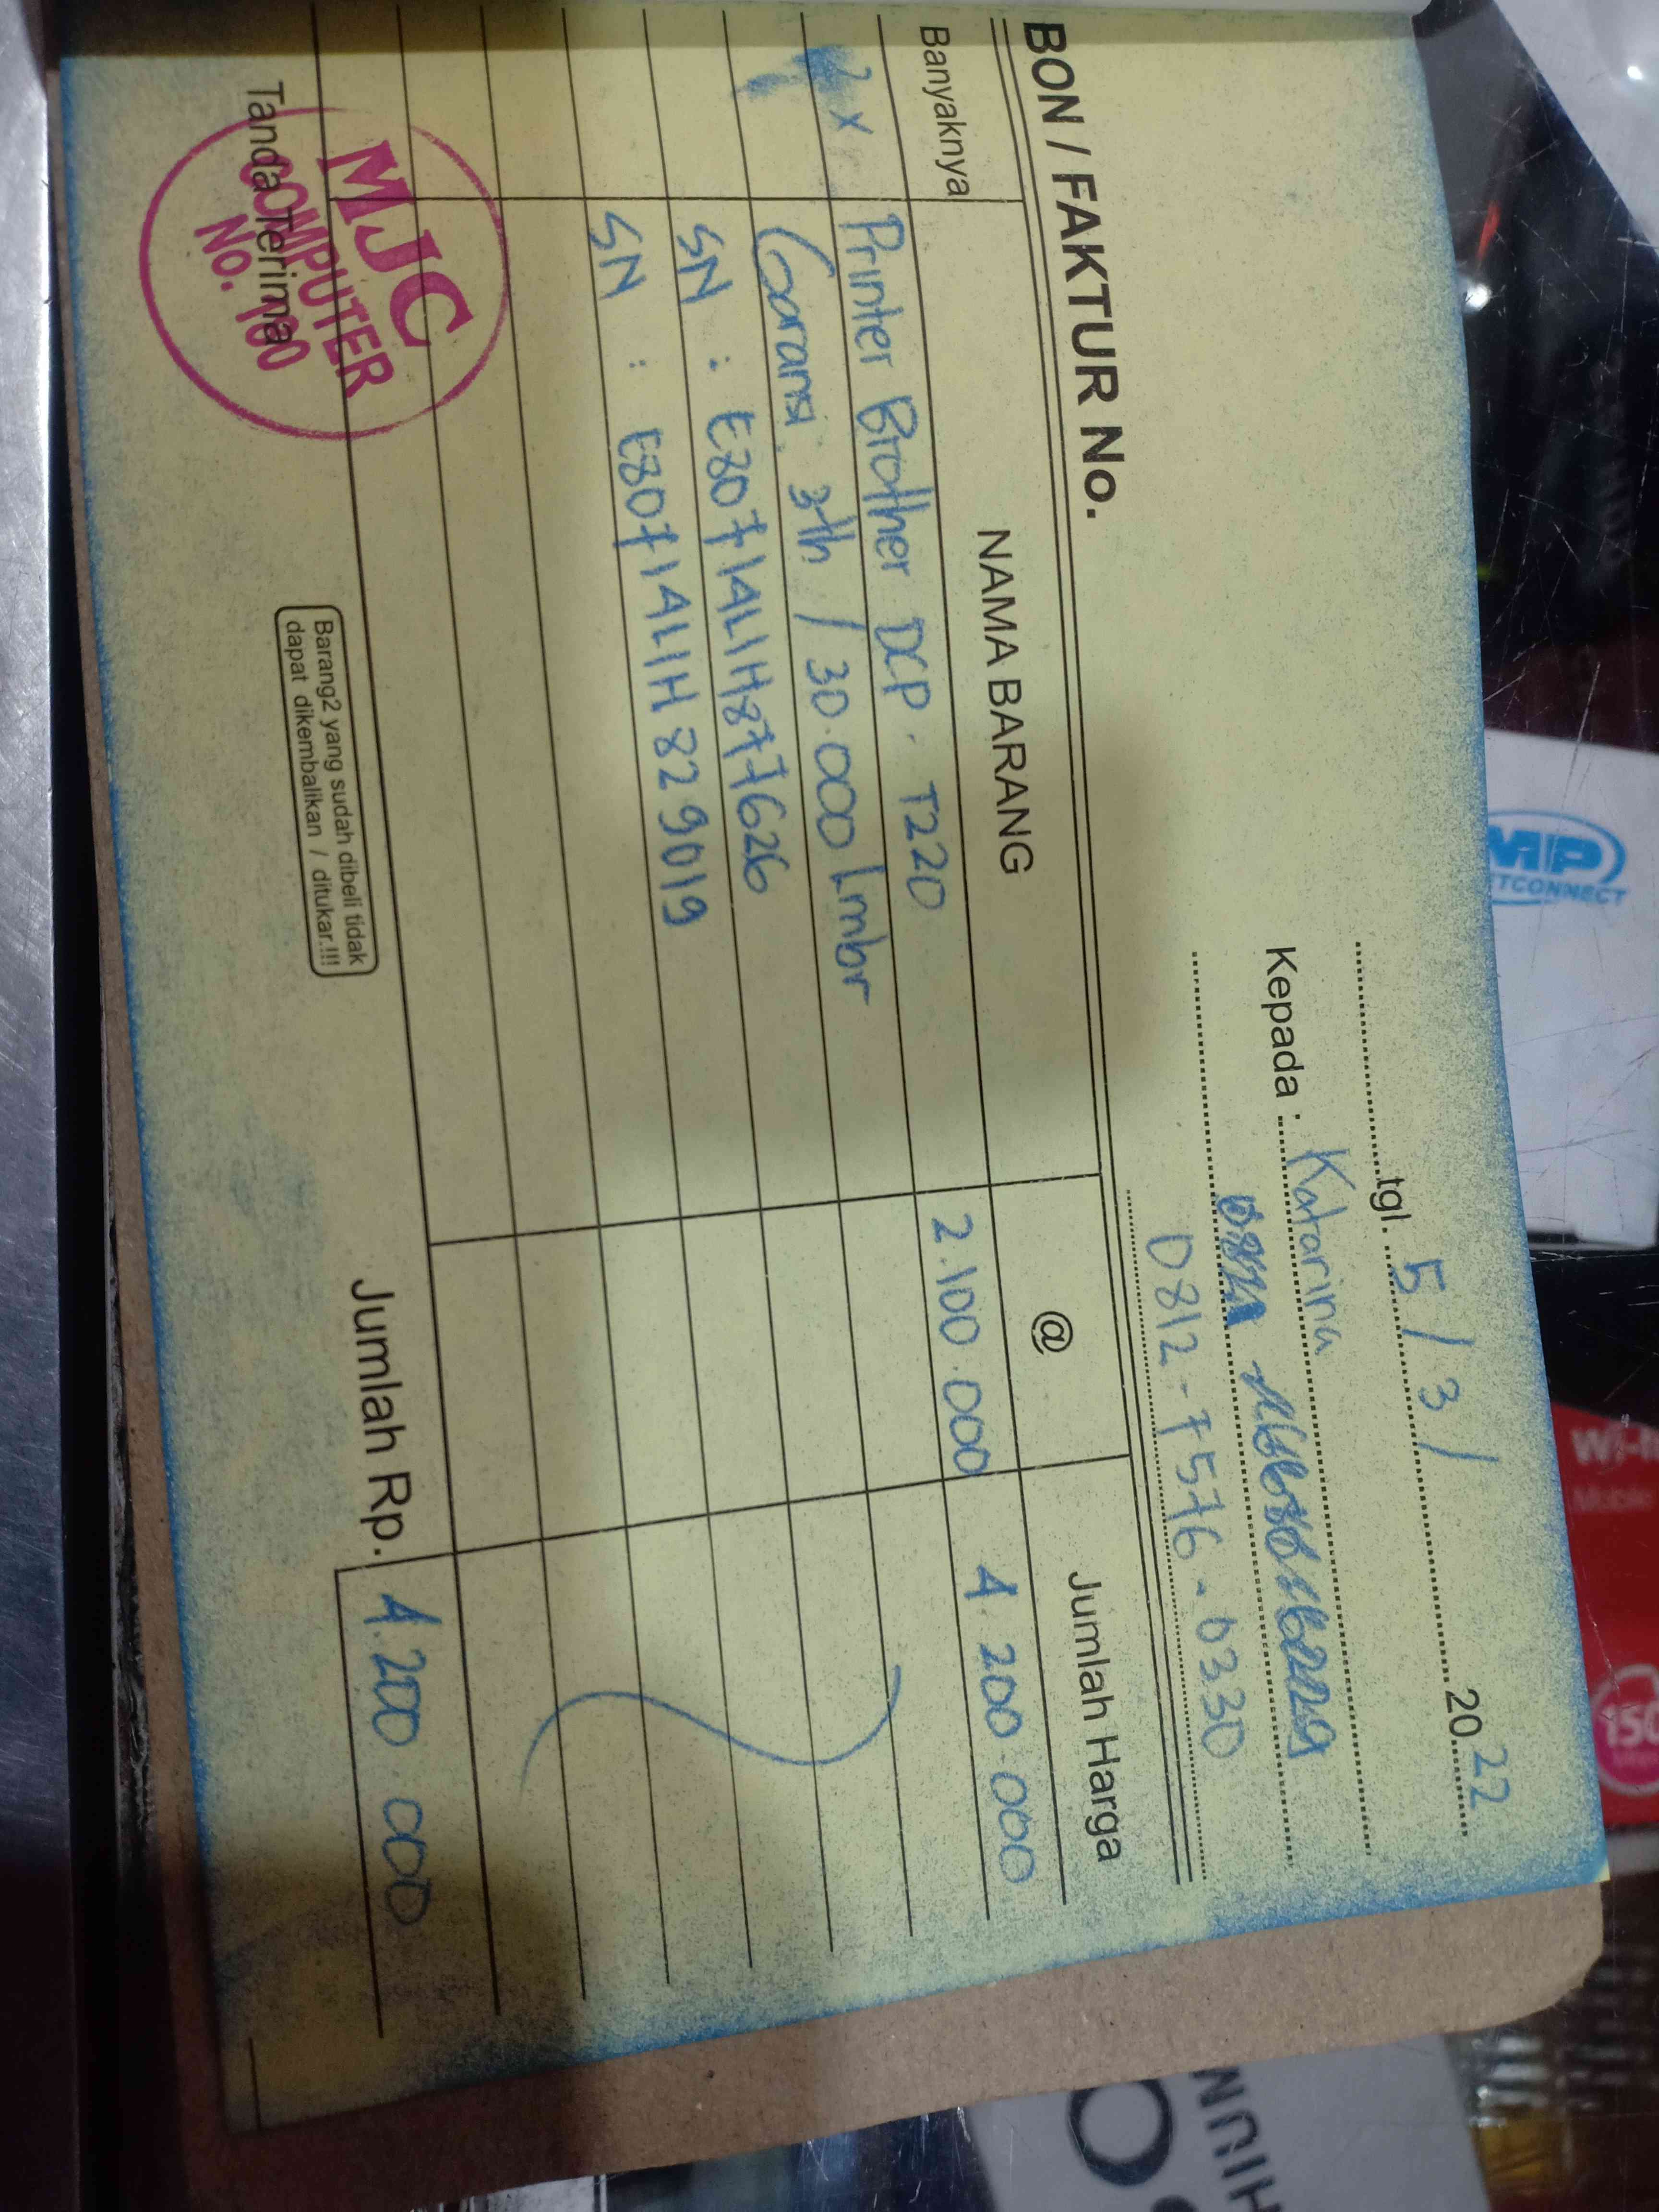 tgl. 5 / 3 / 2022
Kepada : Katarina
0812-7576-0330
BON / FAKTUR No.
Banyaknya NAMA BARANG @ Jumlah Harga
2 x Printer Brother DCP - T220 2.100.000 4.200.000
Garansi 3th / 30.000 lmbr
SN : E80714L1H877626
SN : E80714L1H829019
Jumlah Rp. 4.200.000
Tanda Terima
MJC
COMPUTER
No. 100
Barang2 yang sudah dibeli tidak
dapat dikembalikan / ditukar.!!!
MP
TCONNECT
Wi-fi
150